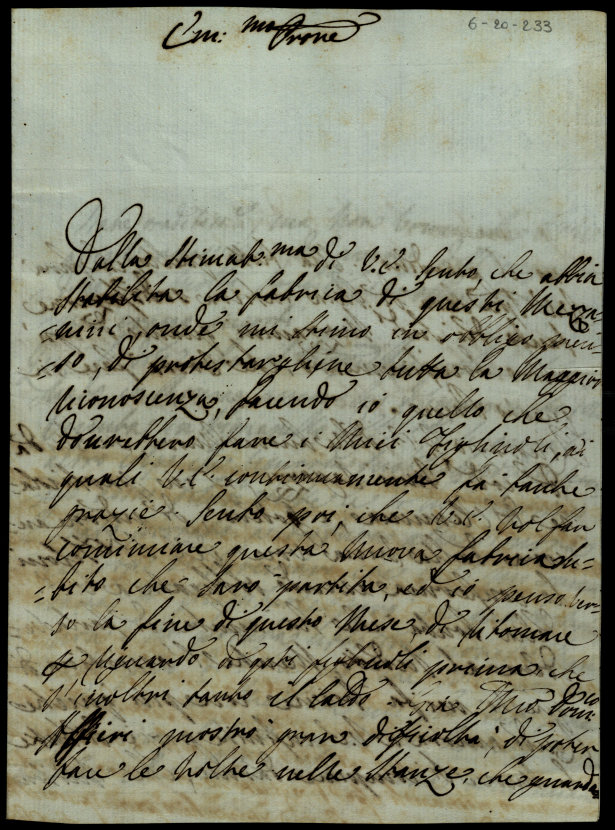 6-20-233
Em:mo Prone
Dalla Stimat.ma di V.E. sento, che abbia
stabilita la fabrica di questi Meza-
=nini, onde mi stimo in obbligo preci-
=so, di protestargliene tutta la Maggior
riconoscenza, facendo io quello che
dovrebbero fare i Miei Figliuoli, ai
quali V.E. continuamente fa tante
grazie. Sento poi, che V.E. vol far
cominciare questa nuova fabrica su-
=bito che sarò partita, ed io penso ver-
so la fine di questo Mese, di ritornare
riguardo a figliuoli prima che
s'inoltri tanto il Caldo. Già Mio
mostrò gran dificoltà, di poter
fare le volte nelle stanze, che guarda